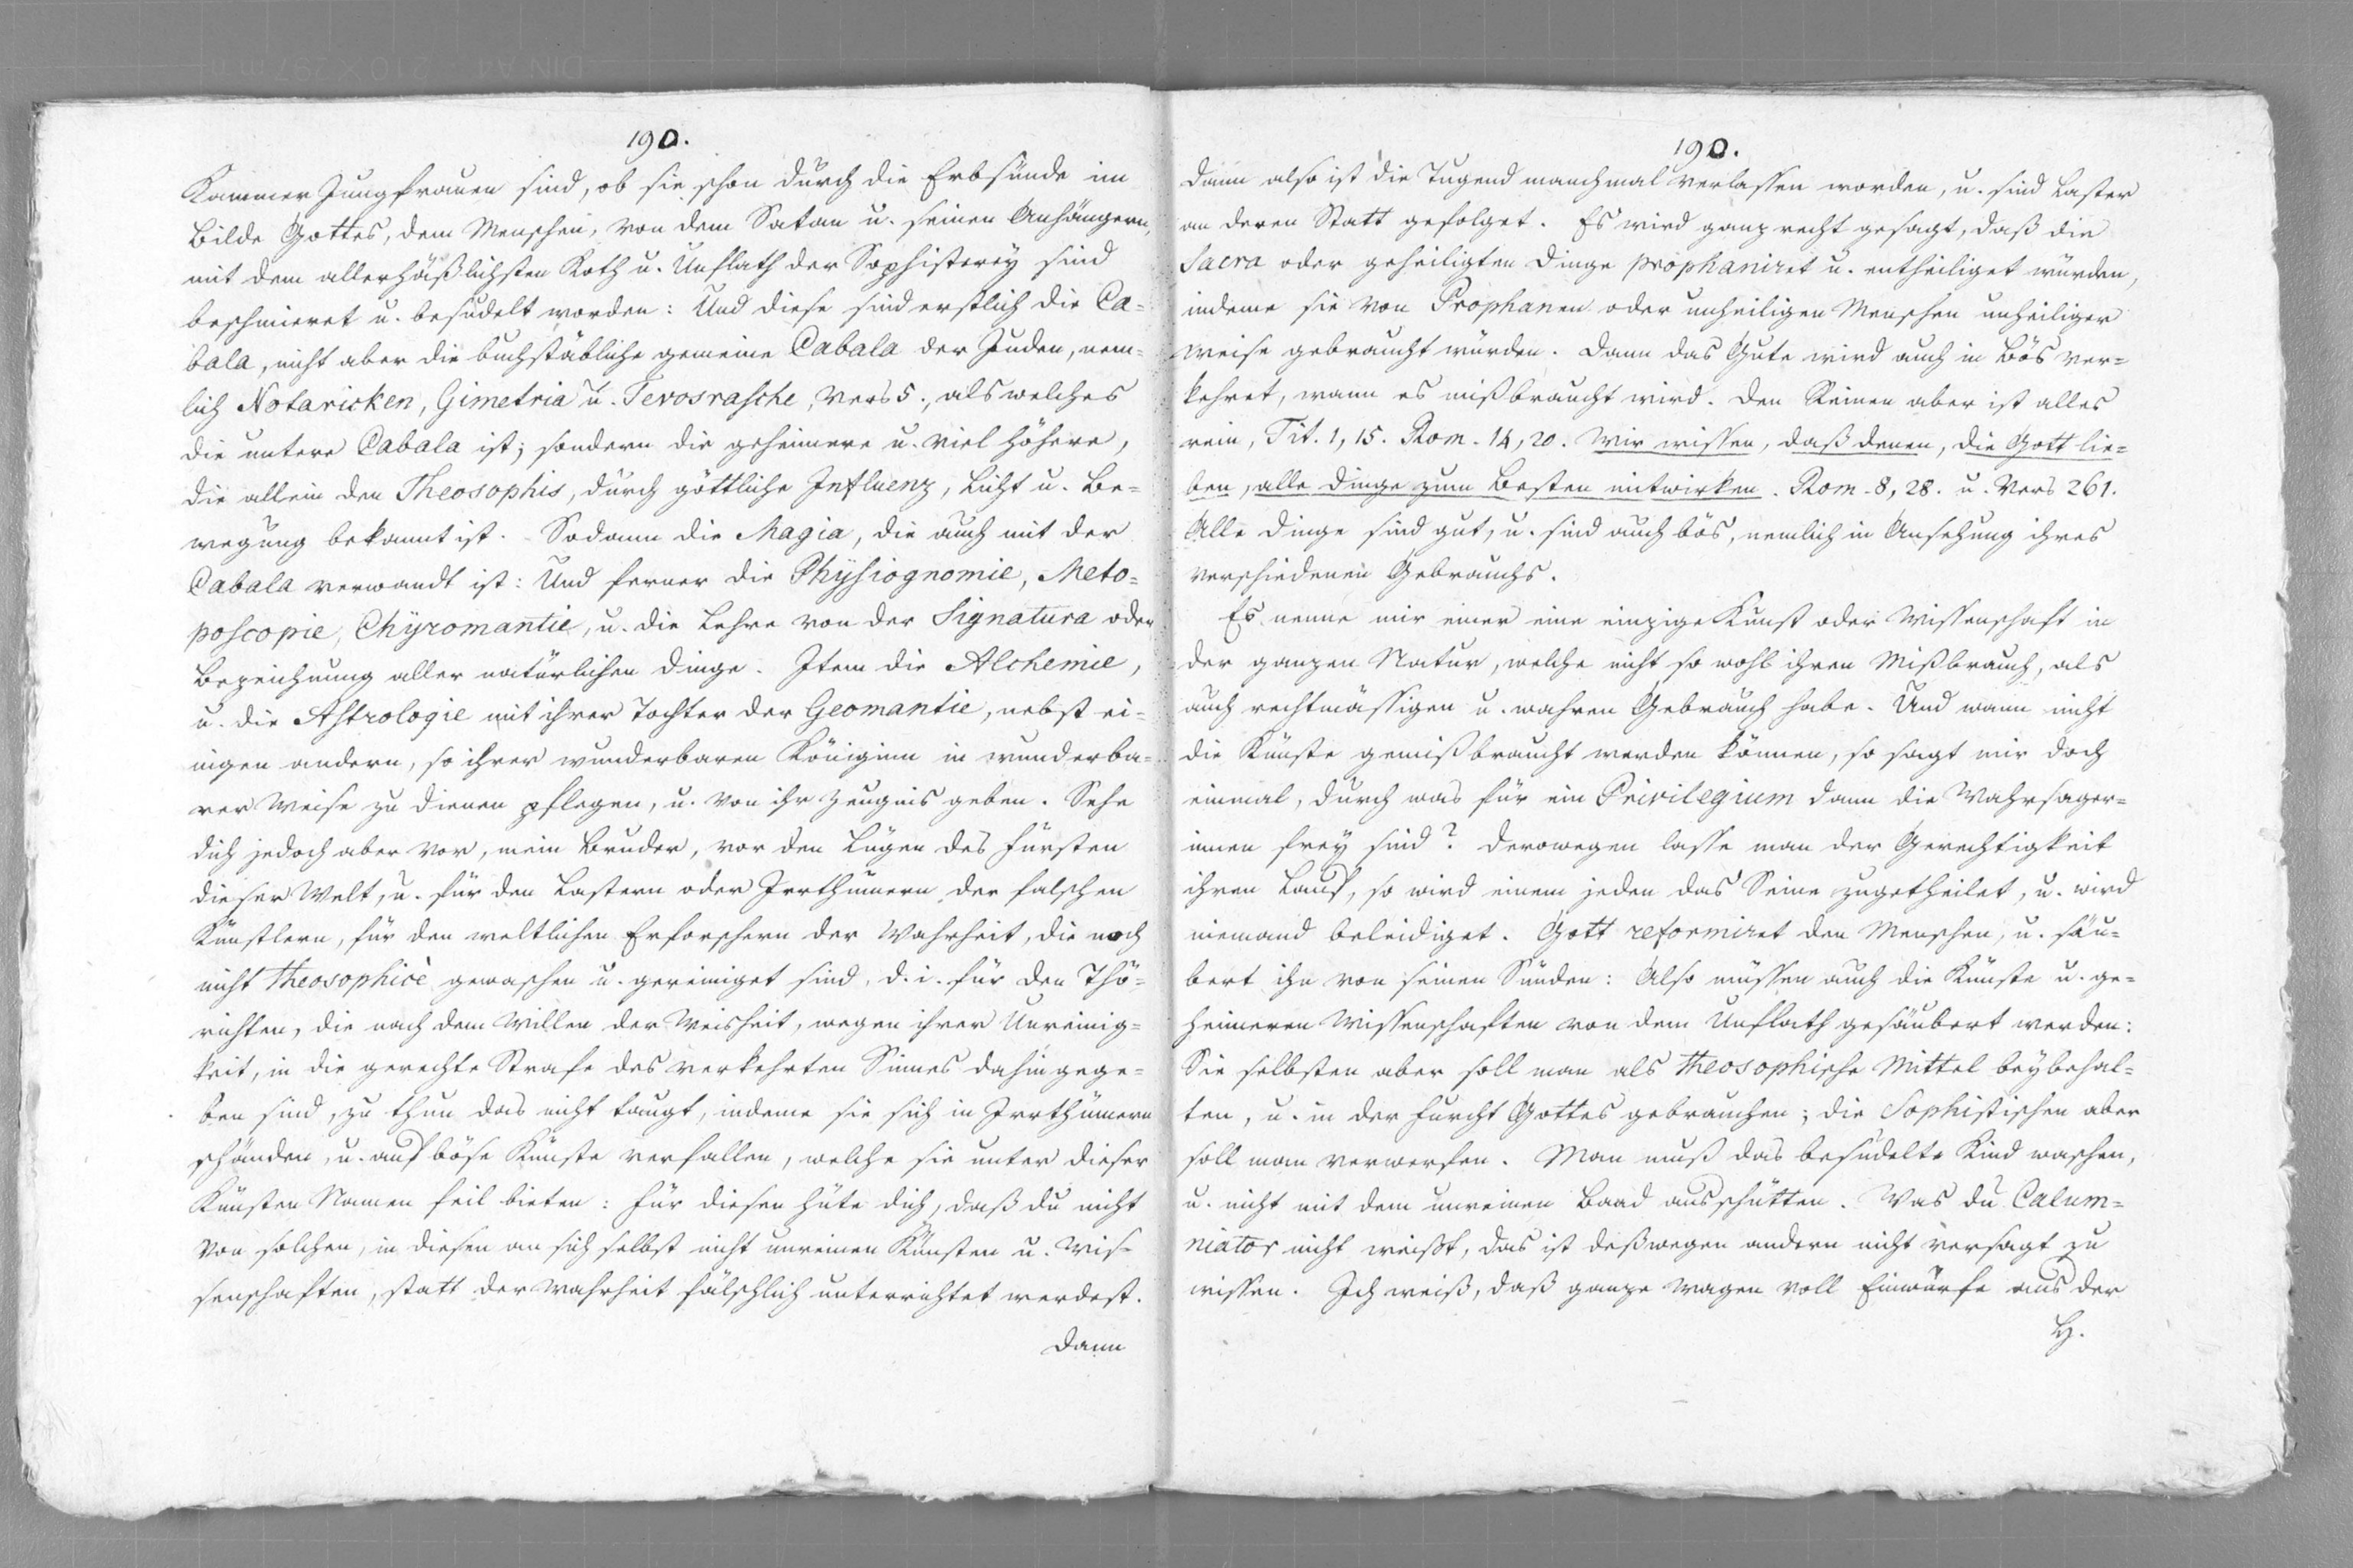 190.
Kammer Jungfrauen sind, ob sie schon durch die Erbsünde im
Bilde Gottes, dem Menschen, von dem Satan u. seinen Anhängern,
mit dem allerhäßlichsten Koth u. Unflath der Sophisterey sind
beschmieret u. besudelt worden: Und diese sind erstlich die Ca=
bala, nicht aber die buchstäbliche gemeine Cabala der Juden, nem=
lich Notaricken, Gimetria u. Terosrasche, Vers 5., als welches
die untere Cabala ist; sondern die geheimere u. viel höhere,
die allein den Theosophis, durch göttliche Influenz, Licht u. Be=
wegung bekannt ist. Sodann die Magia, die auch mit der
Cabala verwandt ist: Und ferner die Physiognomie, Meto=
poscopie, Chyromantie, u. die Lehre von der Signatura oder
Bezeichnung aller natürlichen Dinge. Item die Alchemie,
u. die Astrologie mit ihrer Tochter der Geomantie, nebst ei=
nigen andern, so ihrer wunderbaren Königinn in wunderba=
rer Weise zu dienen pflegen, u. von ihr Zeugnis geben. Sehe
dich jedoch aber vor, mein Bruder, vor den Lügen des Fürsten
dieser Welt, u. für den Lastern oder Irrthümern der falschen
Künstlern, für den weltlichen Erforschern der Wahrheit, die noch
nicht theosophicè gewaschen u. gereiniget sind, d. i. für den Thö=
richten, die nach dem Willen der Weisheit, wegen ihrer Unreinig=
keit, in die gerechte Strafe des verkehrten Sinnes dahingege=
ben sind, zu thun das nicht taugt, indeme sie sich in Irrthümern
schänden, u. auf böse Künste verfallen, welche sie unter dieser
Künsten Namen feil bieten: Für diesen hüte dich, daß du nicht
von solchen, in diesen an sich selbst nicht unreinen Künsten u. Wis=
senschaften, statt der Wahrheit fälschlich unterrichtet werdest.
Dann
190.
Dann also ist die Tugend manchmal verlassen worden, u. sind Laster
an deren Statt gefolget. Es wird ganz recht gesagt, daß die
Sacra oder geheiligten Dinge prophaniret u. entheiliget würden,
indeme sie von Prophanen oder unheiligen Menschen unheiliger
Weise gebraucht würden. Dann das Gute wird auch in Bös ver=
kehret, wann es mißbraucht wird. Den Reinen aber ist alles
rein, Tit. 1, 15. Rom. 14, 20. Wir wissen, daß denen, die Gott lie=
ben, alle Dinge zum Besten mitwirken. Rom. 8, 28. u. Vers 261.
Alle Dinge sind gut, u. sind auch bös, nemlich in Ansehung ihres
verschiedenen Gebrauchs.
Es nenne mir einer eine einzige Kunst oder Wissenschaft in
der ganzen Natur, welche nicht so wohl ihren Mißbrauch, als
auch rechtmässigen u. wahren Gebrauch habe. Und wann nicht
die Künste gemißbraucht werden können, so sagt mir doch
einmal, durch was für ein Privilegium dann die Wahrsager=
innen frey sind? Derowegen lasse man der Gerechtigkeit
ihren Lauf, so wird einem jeden das Seine zugetheilet, u. wird
niemand beleidiget. Gott reformiret den Menschen, u. säu=
bert ihn von seinen Sünden: Also müssen auch die Künste u. ge=
heimeren Wissenschaften von dem Unflath gesäubert werden:
Sie selbsten aber soll man als theosophische Mittel beybehal=
ten, u. in der Furcht Gottes gebrauchen; die Sophistischen aber
soll man verwerfen. Man muß das besudelte Kind waschen,
u. nicht mit dem unreinen Baad ausschütten. Was du Calum=
niator nicht weißt, das ist deßwegen andern nicht versagt zu
wissen. Ich weiß, daß ganze Wagen voll Einwürfe aus der
H.